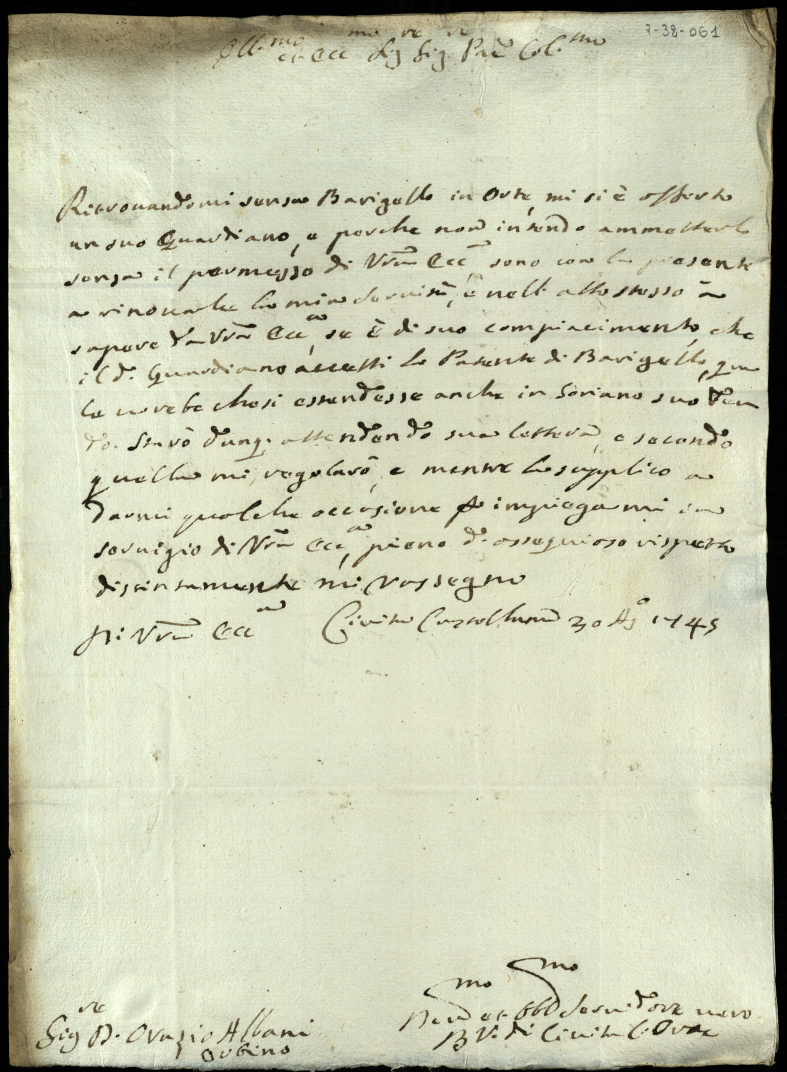 7-38-061
Ill.mo et Ecc.mo Sig.re Sig.re Pãe Col.mo
Ritrouandomi senza Barigello in Orte, mi si è offerto
un suo Guardiano, e perche non intendo ammetterlo
senza il permesso di Vrã Ecc.a sono con la presente
a rinouarle la mia seruitù, e nell' atto stesso a
sapere da Vrã Ecc.a, se è di suo compiacimento, che
il d.o Guardiano accetti la Patente di Barigello, qua
le uorebe che si estendesse anche in Soriano suo feu
do. Starò dunq; attendendo sua lettera, e secondo
quella mi regolarò, e mentre la supplico a
darmi qualche occasione p impiegarmi in
seruigio di Vrã Ecc.a, pieno d' ossequioso rispetto
distintamente mi rassegno
Di Vrã Ecc.a Ciuita Castellana 30 Ag.o 1745
Sig.re D. Orazio Albani
Vrbino
Deu.mo et Obb.mo Seruidore uero
V. di Ciuita C. Orte